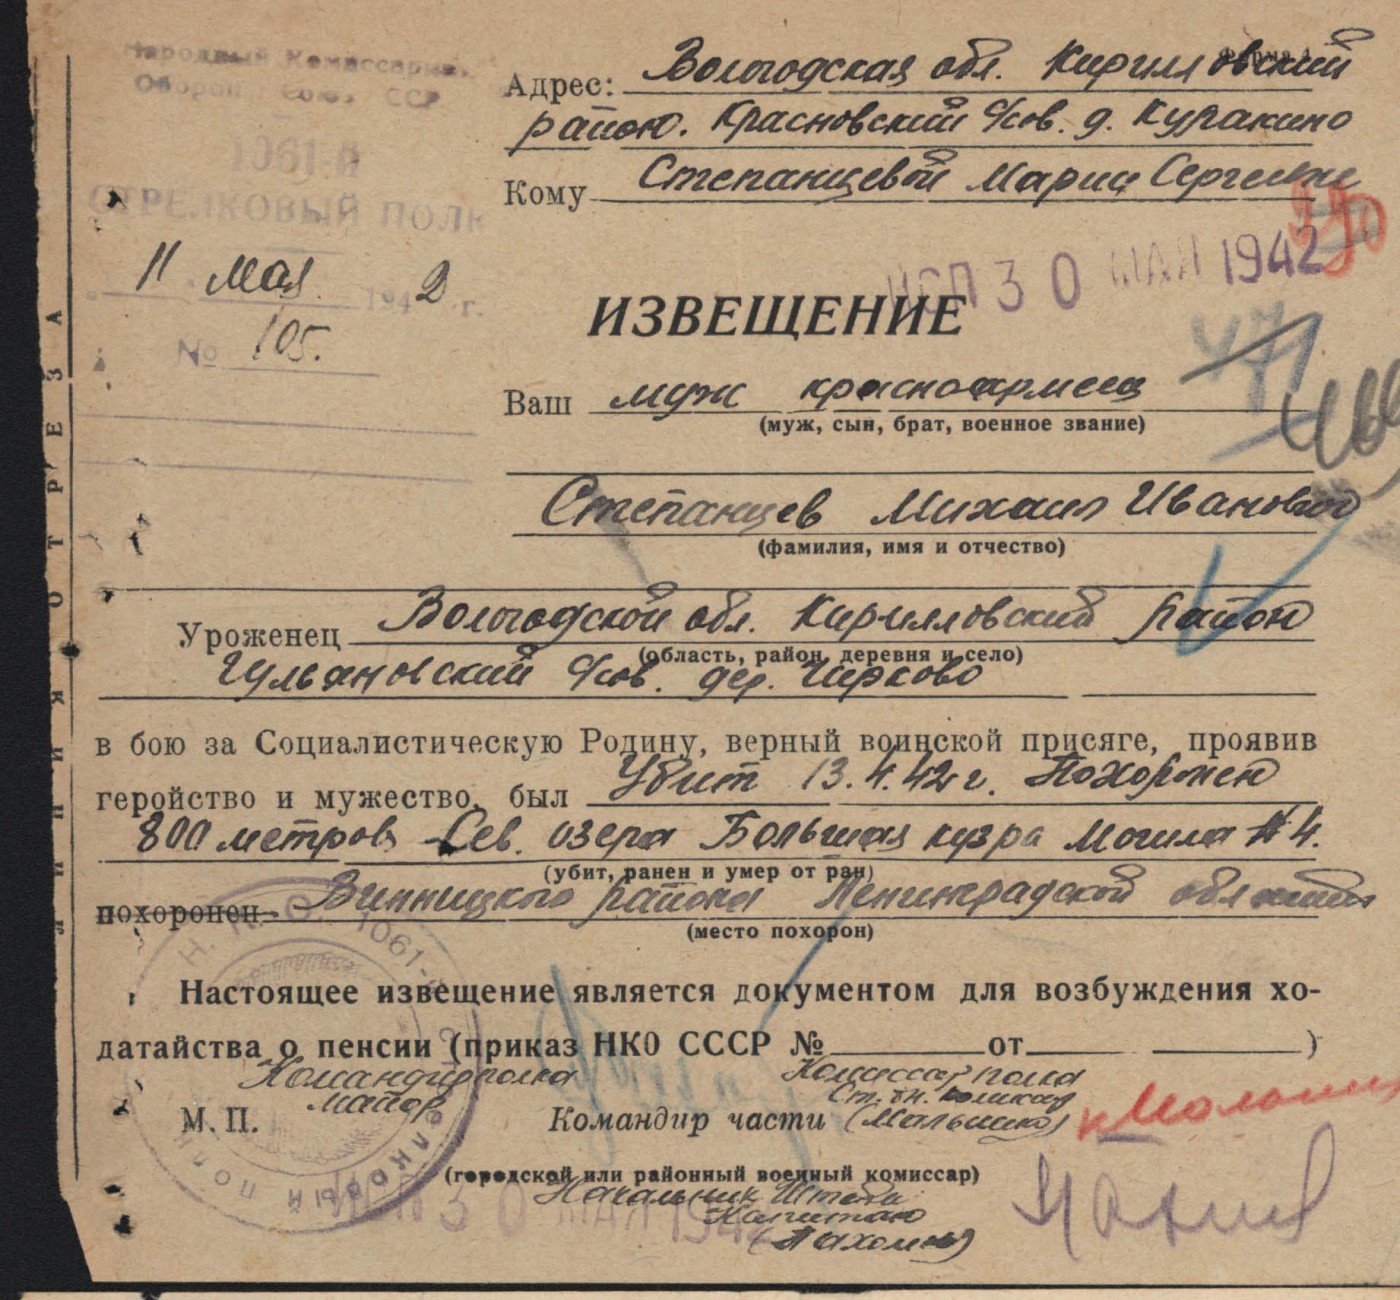 Народный Комиссариат
Обороны Союза ССР
1061-й
СТРЕЛКОВЫЙ ПОЛК
11 мая 1942 г.
№ 105.
Форма
Адрес: Вологодская обл. Кирилловский
район. Красновский с/сов. д. Куракино
Кому Степанцевой Марии Сергеевне
30 МАЯ 1942
ИЗВЕЩЕНИЕ
471
Ваш муж красноармеец
(муж, сын, брат, военное звание)
Степанцев Михаил Иванович
(фамилия, имя и отчество)
Уроженец Вологодской обл. Кирилловский район
(область, район, деревня и село)
Чульяновский с/сов. дер. Чирково
в бою за Социалистическую Родину, верный воинской присяге, проявив
геройство и мужество, был Убит 13.4.42 г. Похоронен
800 метров Сев. озера Большая кузра Могила № 4.
(убит, ранен и умер от ран)
похоронен Винницкого района Ленинградской области
(место похорон)
Настоящее извещение является документом для возбуждения хо-
датайства о пенсии (приказ НКО СССР № от )
Командир полка
майор
Комиссар полка
Ст. бн.
М. П. Командир части
(городской или районный военный комиссар)
Начальник Штаба
Капитан
(Пахомов)
30 МАЯ 1942
ЛИНИЯ ОТРЕЗА